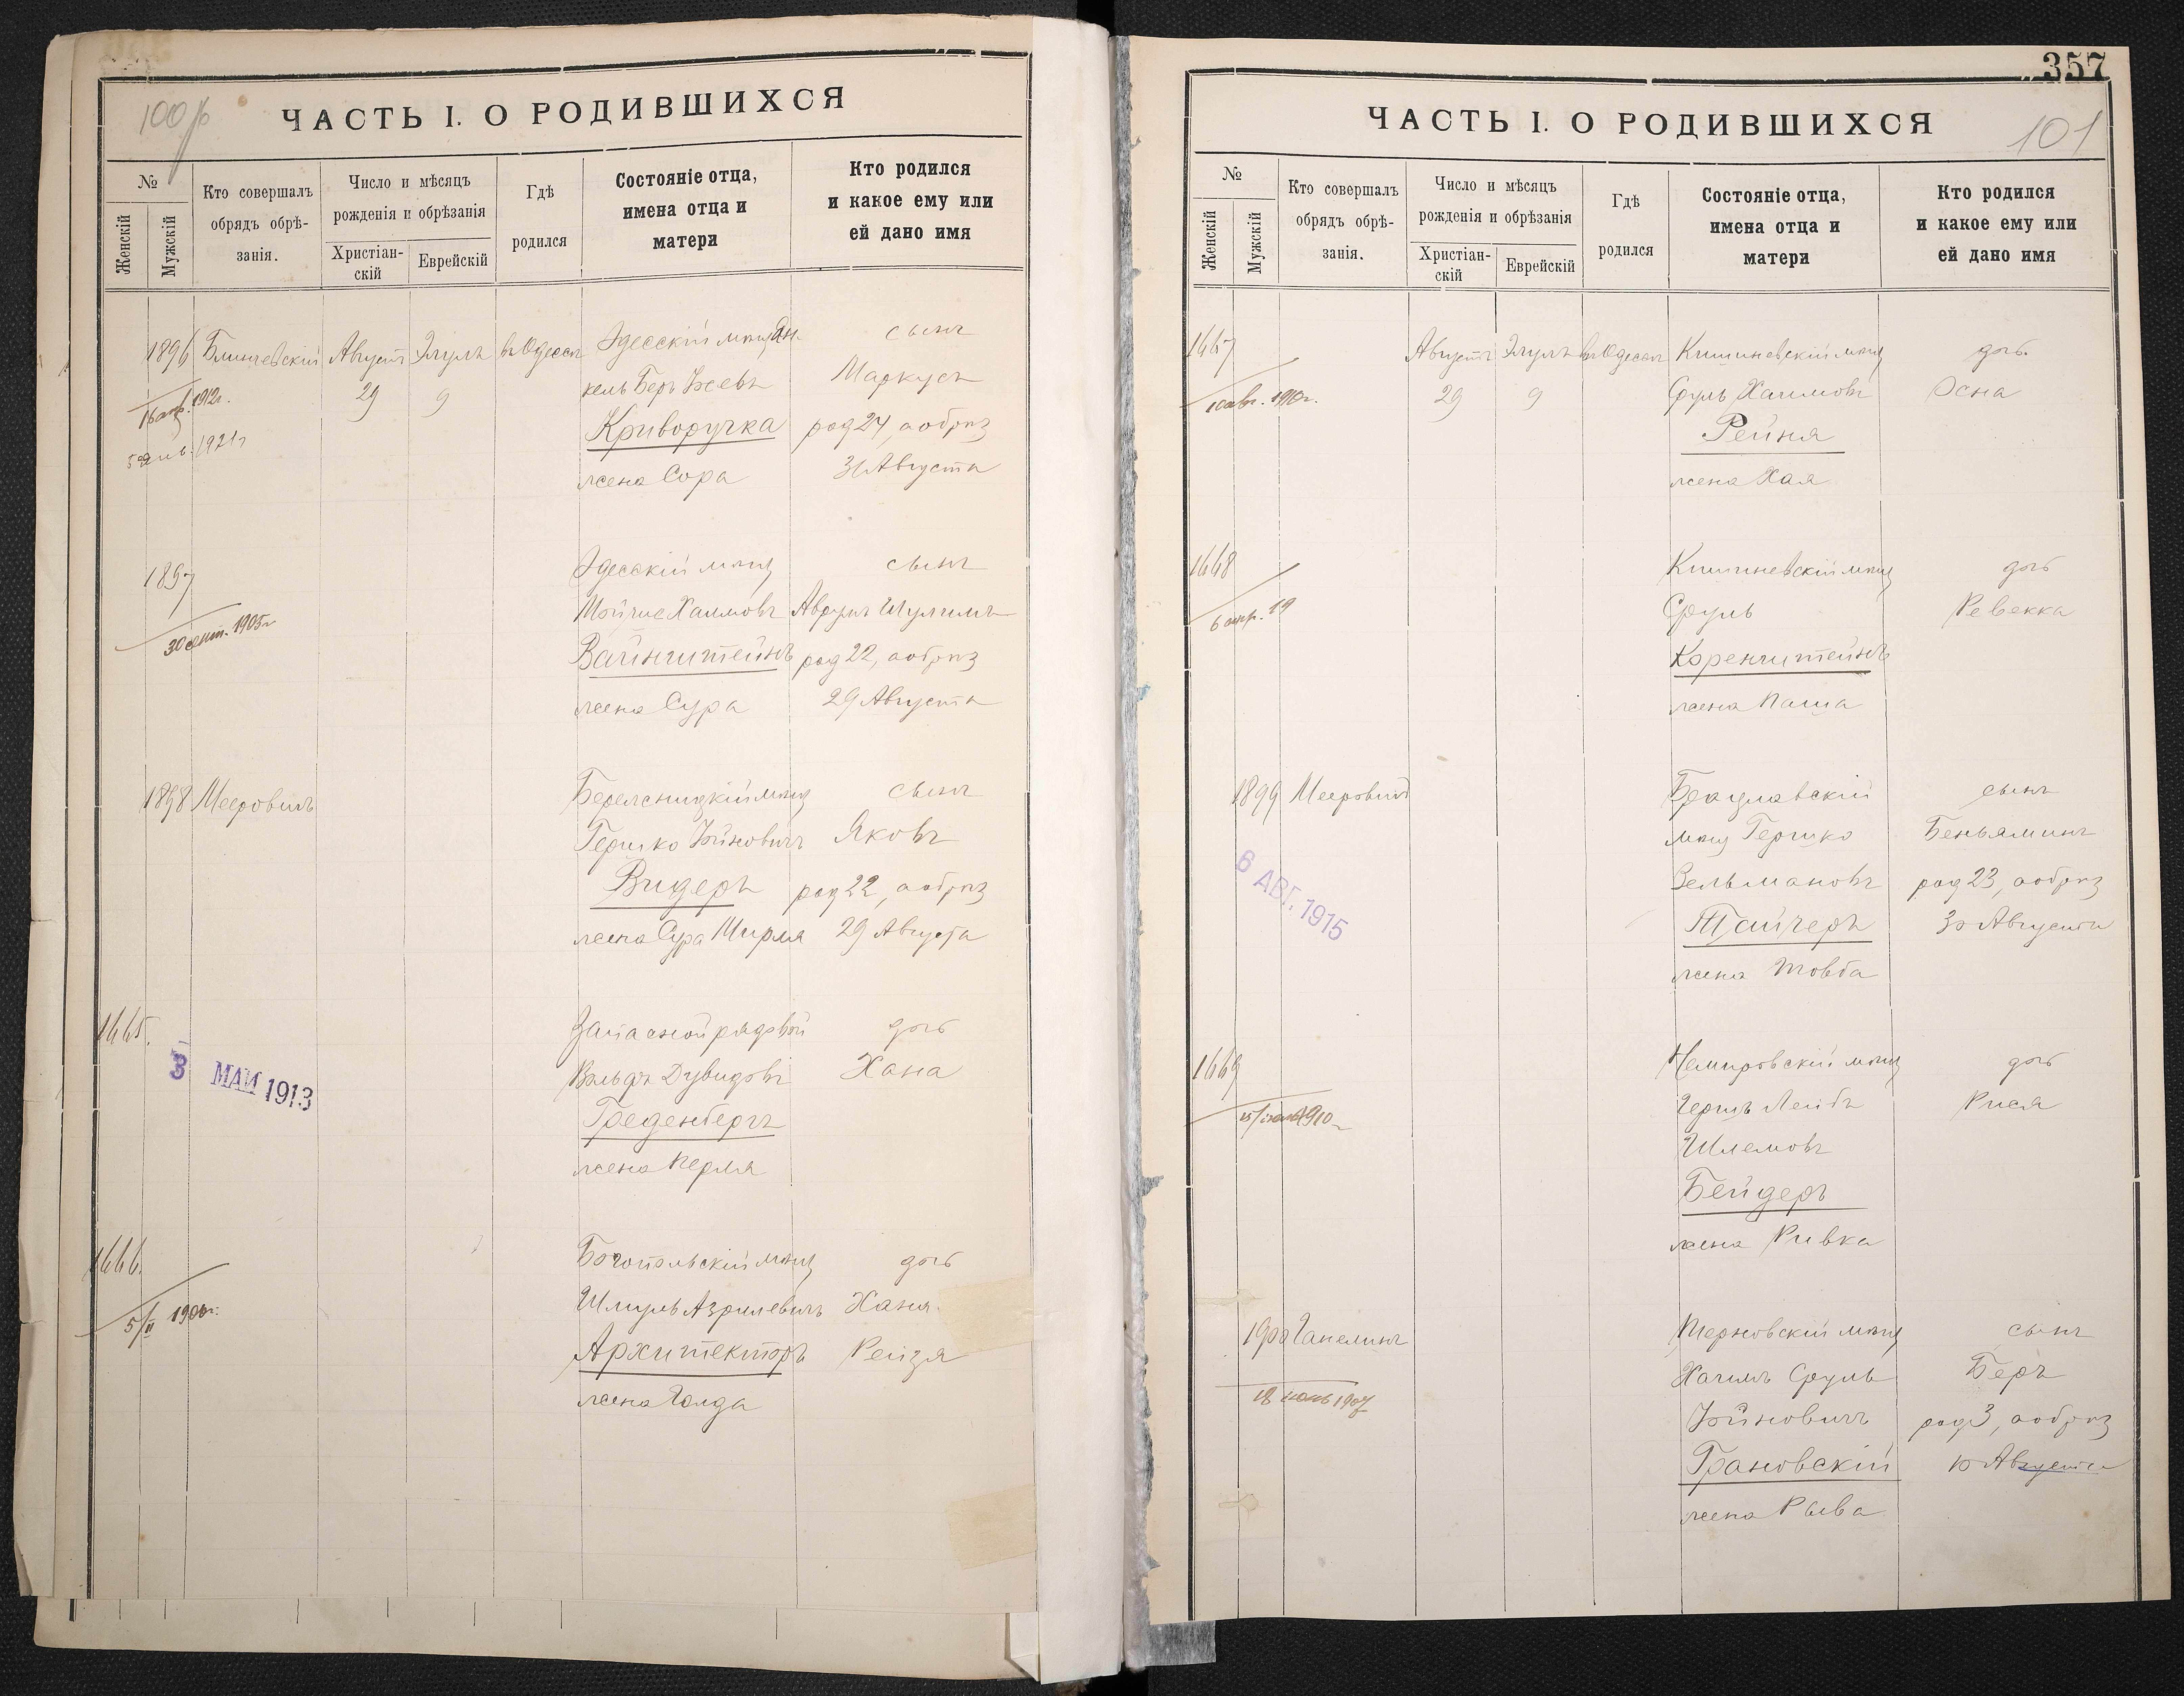 100 об
ЧАСТЬ I. О РОДИВШИХСЯ
№
Женскій
Мужскій
Кто совершалъ
обрядъ обрѣ-
занія.
Число и мѣсяцъ
рожденія и обрѣзанія
Христіан-
скій
Еврейскій
Гдѣ
родился
Состояніе отца,
имена отца и
матери
Кто родился
и какое ему или
ей дано имя
1896
Августъ
Элулъ
въ Одессѣ
29
9
Одесскій мѣщ Ян-
кель Беръ
Криворучка
жена Сора
сынъ
Маркусъ
род 24, а обрѣз
31 Августа
1912г.
1921г
1897
30 сент. 1905г
Одесскій мѣщ
Мойше Хаимовъ
Вайнштейнъ
жена Сура
сынъ
Аврумъ Шулимъ
род 22, а обрѣз
29 Августа
1898
Мееровичъ
мѣщ
Гершко Йойновичъ
Видеръ
жена Сура Мирля
сынъ
Яковъ
род 22, а обрѣз
29 Августа
1665.
3 МАЙ 1913
Запасной рядовой
Вольфъ Дувидовъ
Греденбергъ
жена Перля
дочь
Хана
1666.
5/II 1906г.
Богопольскій мѣщ
Шмуль Азрилевичъ
Архитекторъ
жена Голда
дочь
Ханя
Рейзя
357
101
ЧАСТЬ I. О РОДИВШИХСЯ
№
Женскій
Мужскій
Кто совершалъ
обрядъ обрѣ-
занія.
Число и мѣсяцъ
рожденія и обрѣзанія
Христіан-
скій
Еврейскій
Гдѣ
родился
Состояніе отца,
имена отца и
матери
Кто родился
и какое ему или
ей дано имя
1667
авг. 1910г.
Августъ
Элулъ
въ Одессѣ
29
9
Кишиневскій мѣщ
Сруль Хаимовъ
Рейня
жена Хая
дочь
Осна
1668
Кишиневскій мѣщ
Сруль
Коренштейнъ
жена Паша
дочь
Ревекка
1899
Мееровичъ
6 АВГ. 1915
Брацлавскій
мѣщ Гершко
Зельмановъ
Тайчеръ
жена Товба
сынъ
Беньяминъ
род 23, а обрѣз
30 Августа
1669
1910
Немировскій мѣщ
Гершъ Лейбъ
Шлемовъ
Бейдеръ
жена Ривка
дочь
Рися
1900
Гапелинъ
18 1907
Терновскій мѣщ
Хаимъ Сруль
Йойновичъ
Грановскій
жена Рыва
сынъ
Беръ
род 3, а обрѣз
10 Августа